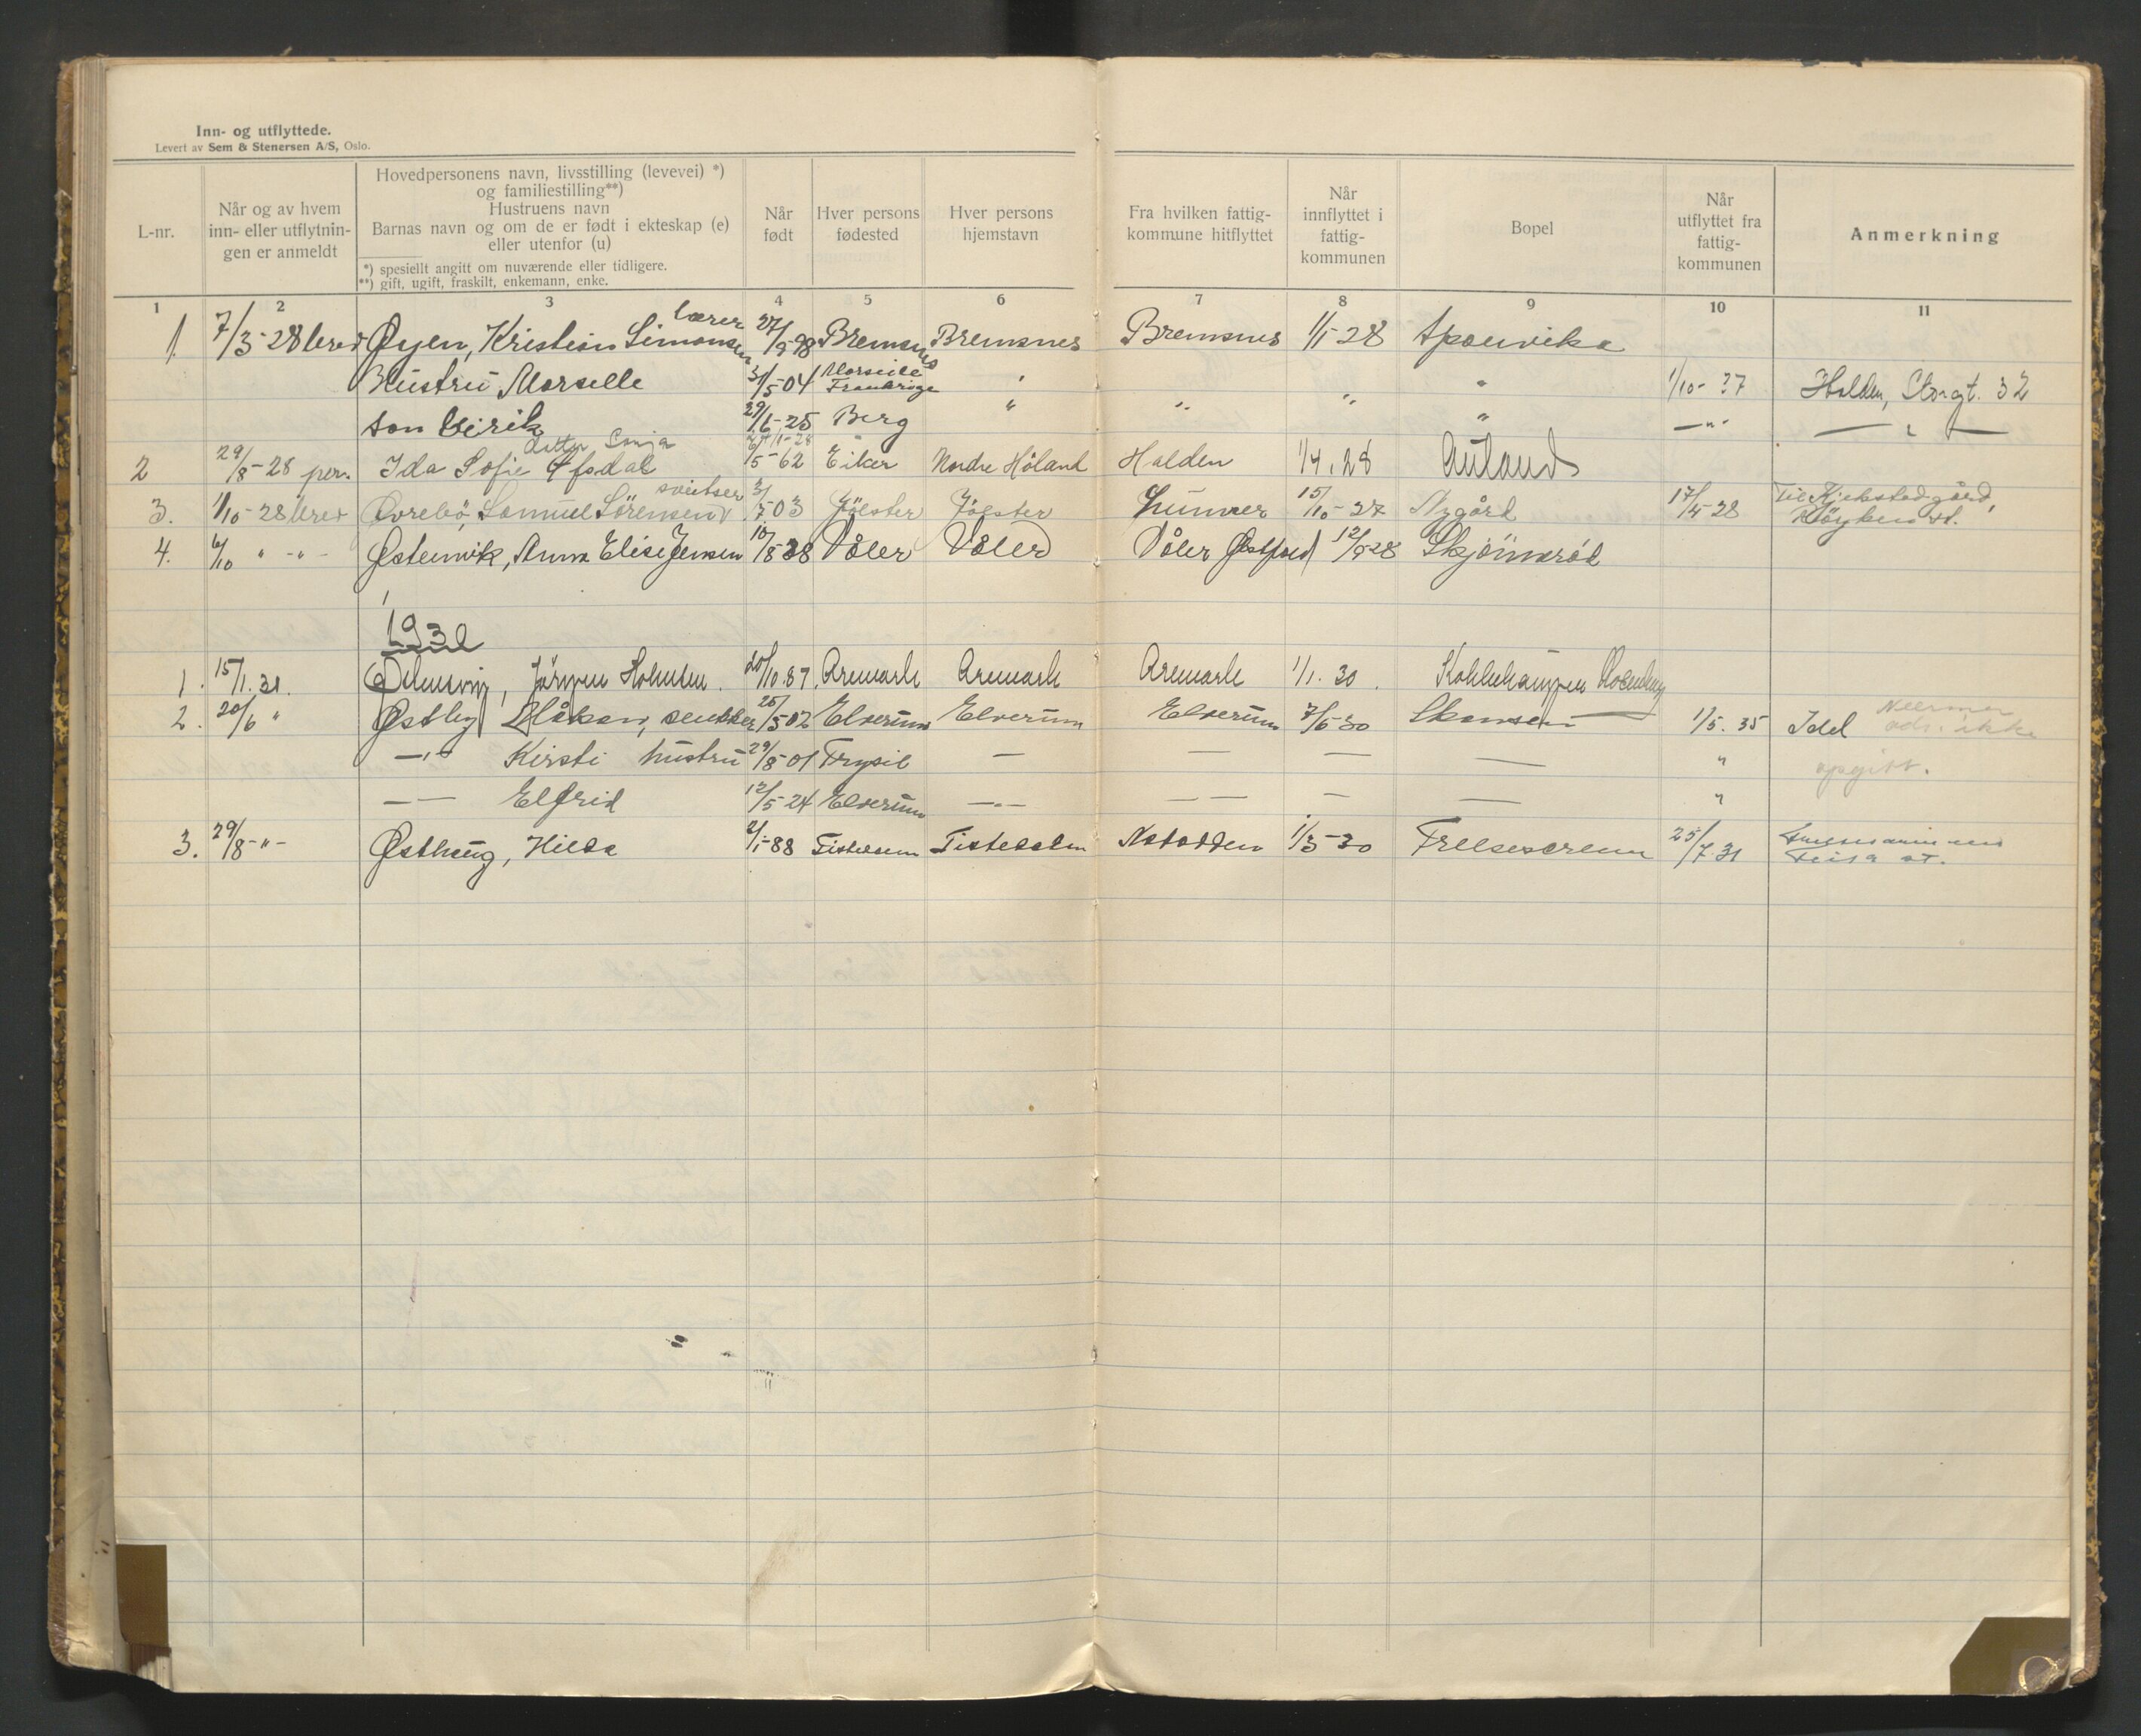 Inn- og utflyttede.
Levert av Sem & Stenersen A/S, Oslo.
L-nr.
Når og av hvem
inn- eller utflytnin-
gen er anmeldt
Hovedpersonens navn, livsstilling (levevei) *)
og familiestilling**)
Hustruens navn
Barnas navn og om de er født i ekteskap (e)
eller utenfor (u)
*) spesiellt angitt om nuværende eller tidligere.
**) gift, ugift, fraskilt, enkemann, enke.
Når
født
Hver persons
fødested
Hver persons
hjemstavn
Fra hvilken fattig-
kommune hitflyttet
Når
innflyttet i
fattig-
kommunen
Bopel
Når
utflyttet fra
fattig-
kommunen
Anmerkning
1 2 3 4 5 6 7 8 9 10 11
lærer
1. 7/3-28 brev Øyen, Kristian Simonsen 27/9-98 Bremsnes Bremsnes Bremsnes 1/1-28 Sponvika
Hustru Marselle 31/5-04 Marseille Frankrige " " 1/10-37 Halden, Storgt. 32
søn Eirik 29/6-25 Berg " " " " —"— — " —
datter Sonja
2 29/8-28 per. Ida Sofie 9/5-62 Eiker Nordre Høland Halden 1/4.28
sveitser
3. 1/10-28 brev Øvrebö, Samuel Sörensen 3/7-03 Jölster Jölster Lunner 15/10-27 Nygård 17/4-28 Til Kjekstad gård,
Röyken st.
4. 6/10 " -"- Østenvik, Anna Elise Jensen 10/8-38 Våler Våler Våler Østfold 12/9-28 Skjönneröd
1930
1. 15/1.31. Jörgen Holmsen. 20/10.87. Aremark Aremark Aremark 1/1.30.
2. 20/6 " Østby Håkon, snekker 25/5 02 Elverum Elverum Elverum 7/6-30 Skansen 1/5.35 Idd Nærmere
adr. ikke
—"— Kirsti hustru 29/8-01 Trysil — — — — " opgitt.
— — Elfrid 12/5-24 Elverum —"— — — — — "
3. 29/8-"- Østhaug, Hilda 2/1-88 Tistedalen Tistedalen Notodden 1/3-30 Frelsesarmeen 25/7.31